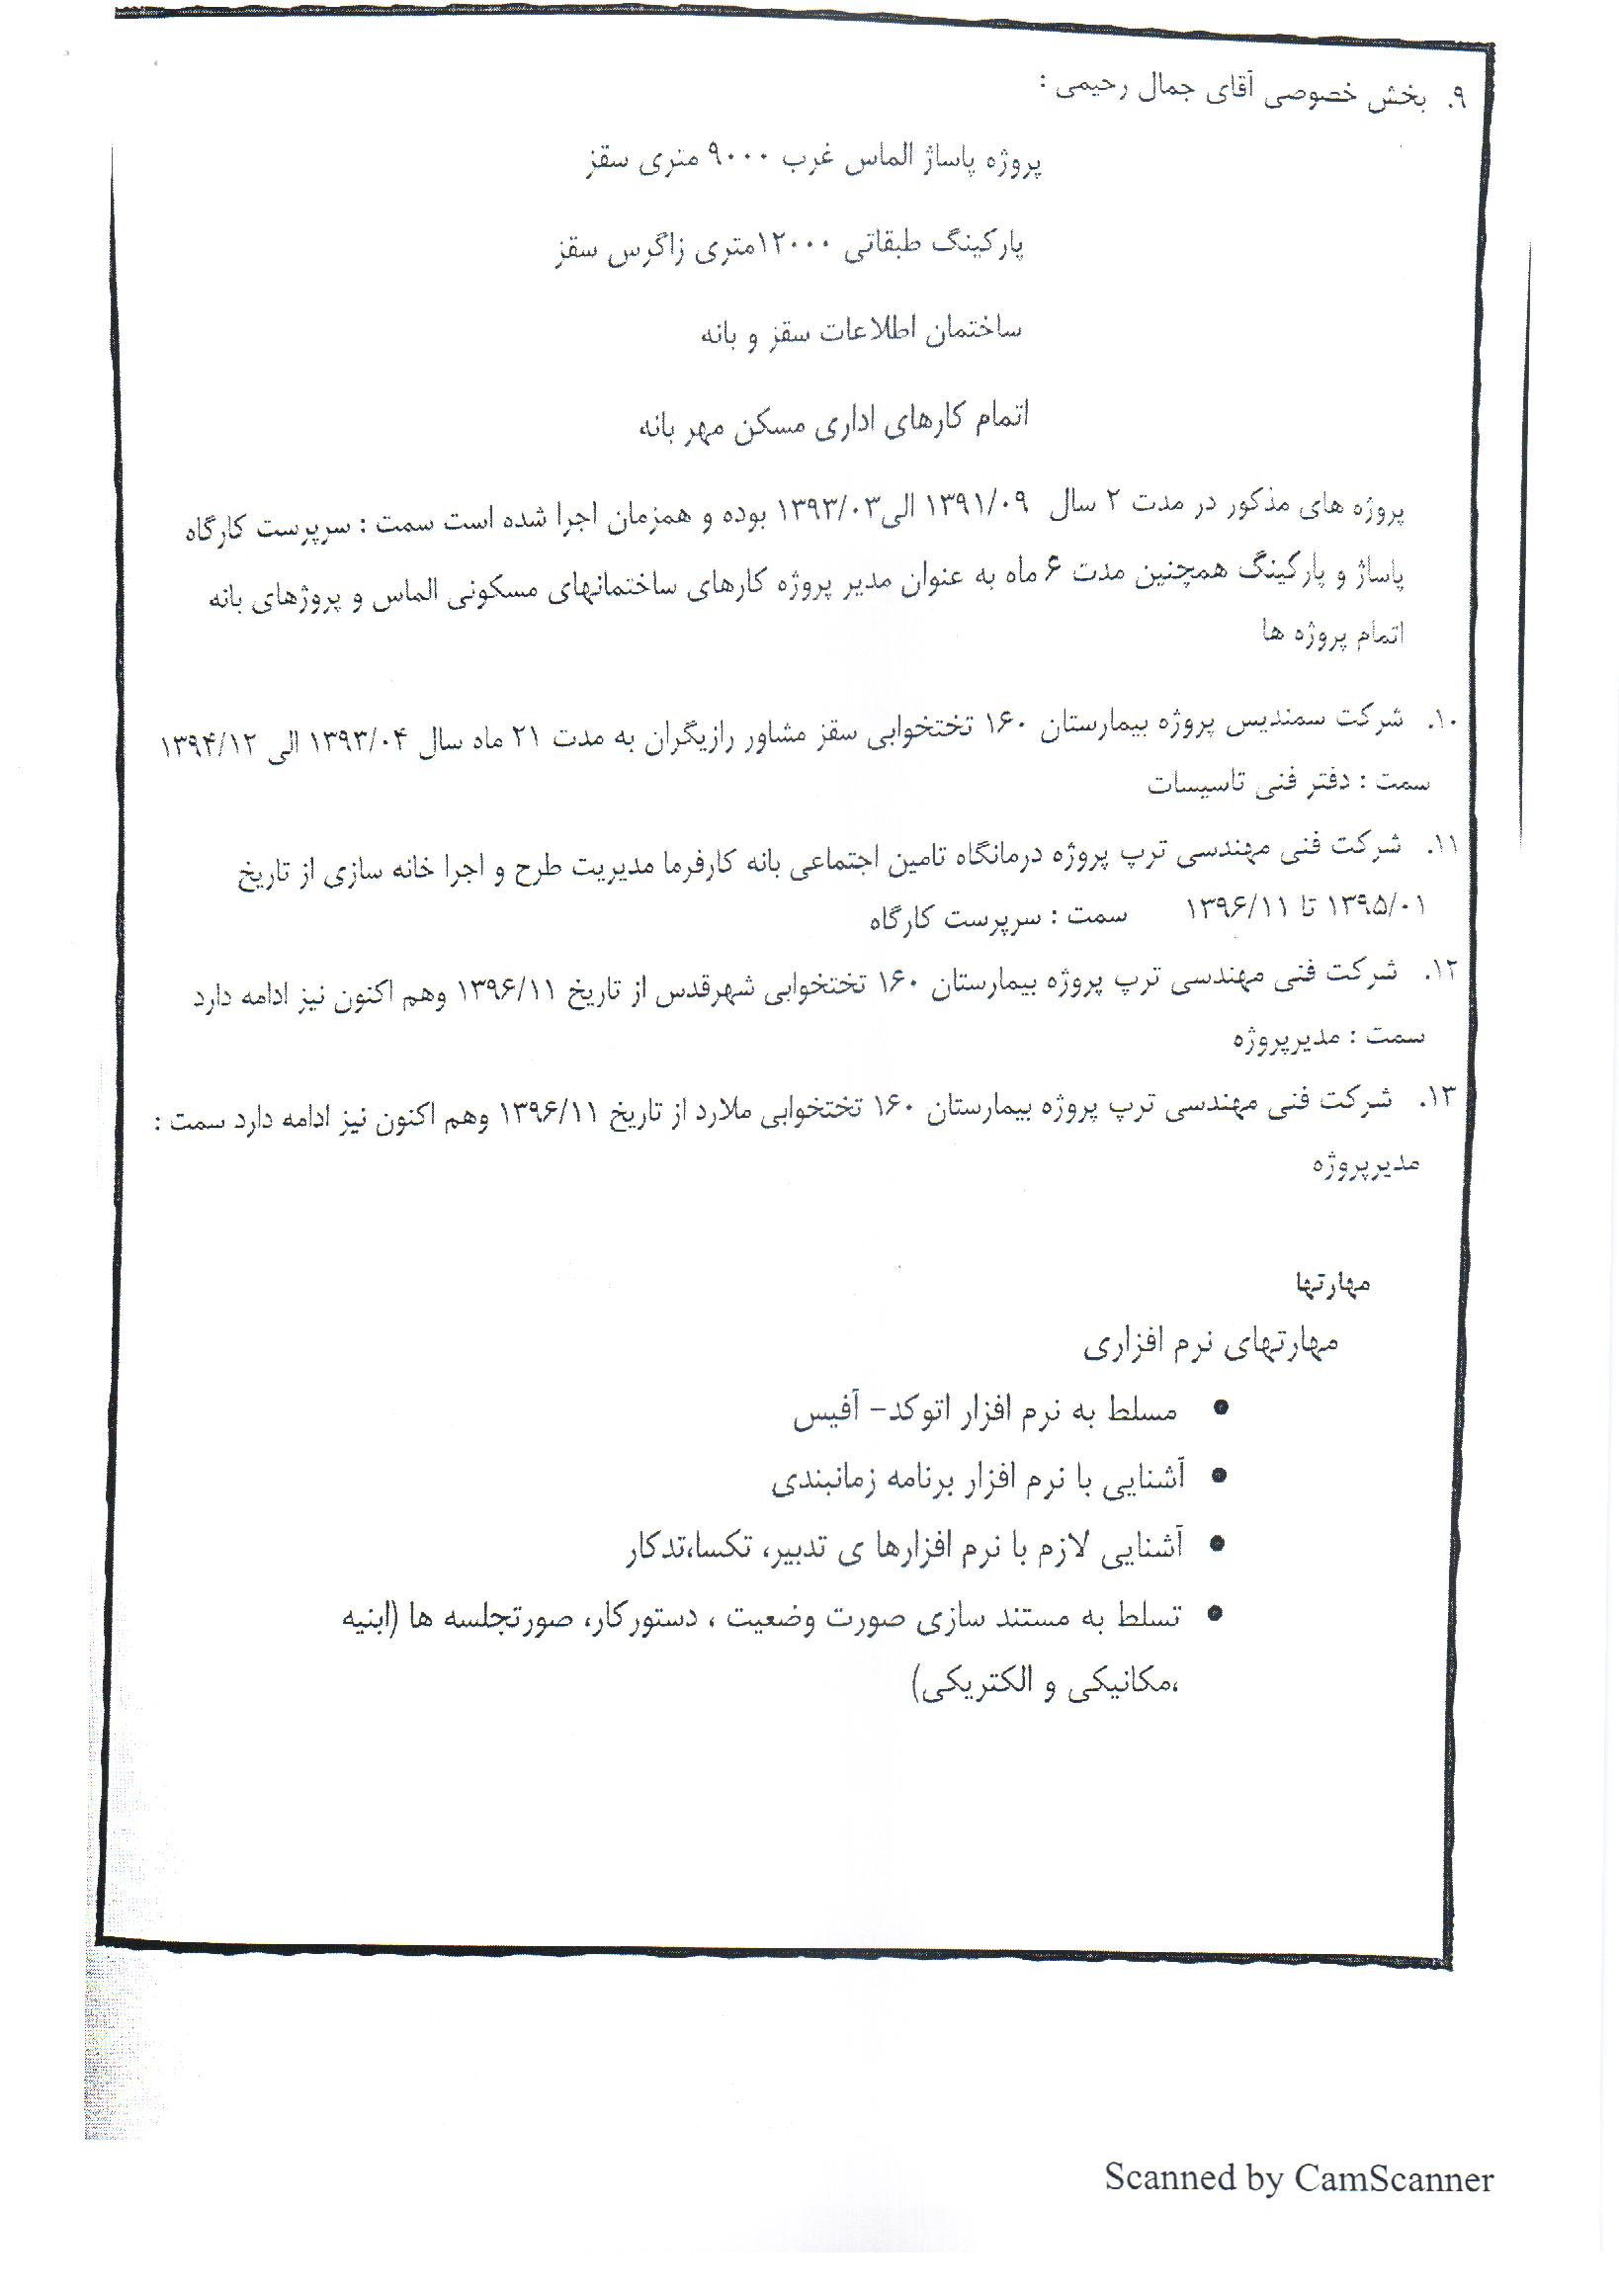 ۹. بخش خصوصی آقای جمال رحیمی :
پروژه پاساژ الماس غرب ۹۰۰۰ متری سقز
پارکینگ طبقاتی ۱۲۰۰۰متری زاگرس سقز
ساختمان اطلاعات سقز و بانه
اتمام کارهای اداری مسکن مهر بانه
پروژه های مذکور در مدت ۲ سال ۱۳۹۱/۰۹ الی۱۳۹۳/۰۳ بوده و همزمان اجرا شده است سمت : سرپرست کارگاه
پاساژ و پارکینگ همچنین مدت ۶ ماه به عنوان مدیر پروژه کارهای ساختمانهای مسکونی الماس و پروژهای بانه
اتمام پروژه ها
۱۰. شرکت سمندیس پروژه بیمارستان ۱۶۰ تختخوابی سقز مشاور رازیگران به مدت ۲۱ ماه سال ۱۳۹۳/۰۴ الی ۱۳۹۴/۱۲
سمت : دفتر فنی تاسیسات
۱۱. شرکت فنی مهندسی ترپ پروژه درمانگاه تامین اجتماعی بانه کارفرما مدیریت طرح و اجرا خانه سازی از تاریخ
۱۳۹۵/۰۱ تا ۱۳۹۶/۱۱ سمت : سرپرست کارگاه
۱۲. شرکت فنی مهندسی ترپ پروژه بیمارستان ۱۶۰ تختخوابی شهرقدس از تاریخ ۱۳۹۶/۱۱ وهم اکنون نیز ادامه دارد
سمت : مدیرپروژه
۱۳. شرکت فنی مهندسی ترپ پروژه بیمارستان ۱۶۰ تختخوابی ملارد از تاریخ ۱۳۹۶/۱۱ وهم اکنون نیز ادامه دارد سمت :
مدیرپروژه
مهارتها
مهارتهای نرم افزاری
● مسلط به نرم افزار اتوکد- آفیس
● آشنایی با نرم افزار برنامه زمانبندی
● آشنایی لازم با نرم افزارها ی تدبیر، تکسا،تدکار
● تسلط به مستند سازی صورت وضعیت ، دستورکار، صورتجلسه ها (ابنیه
،مکانیکی و الکتریکی)
Scanned by CamScanner